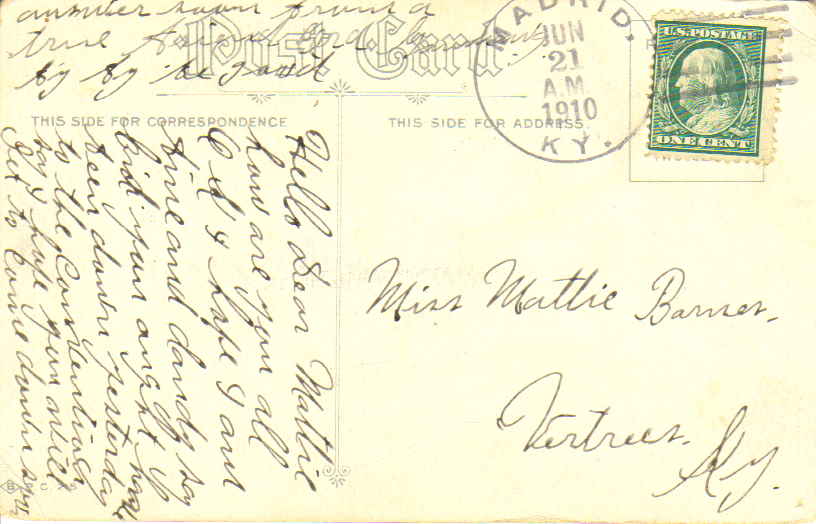 Post Card
THIS SIDE FOR CORRESPONDENCE
THIS SIDE FOR ADDRESS
MADRID.
JUN
21
A.M.
1910
KY.
U.S. POSTAGE
ONE CENT
Miss Mattie Barnes.
Vertrees.
Ky.
Hello Dear Mattie
how are you all
I hope I am
fine and dandy say
kid you ought to
been down yesterday
to the
say I hope you will
get to come down soon
answer soon from a
true
by by be good